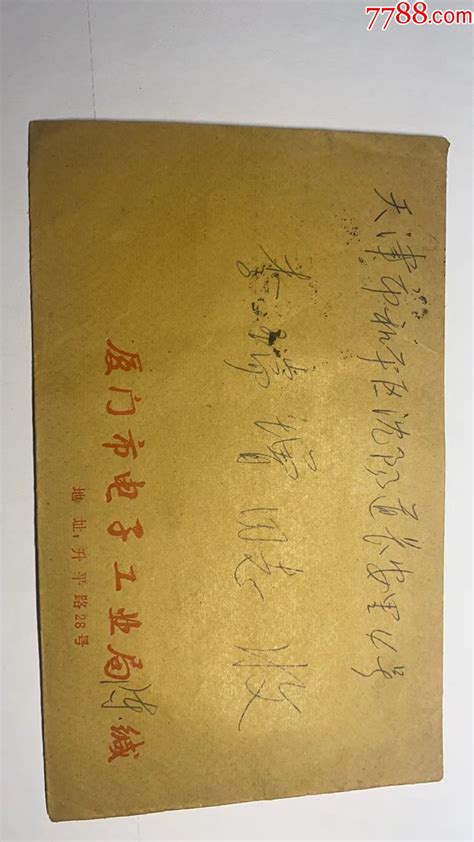 7788.com
天津市和平区沈阳道长安里 号
李 同志 收
厦门市电子工业局 缄
地址:升平路28号